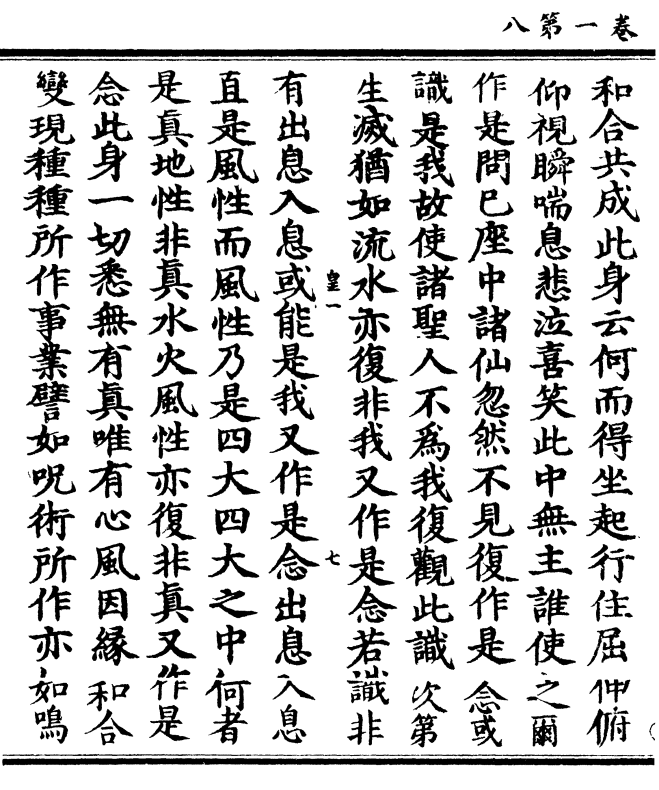 卷一第八
和合共成此身云何而得坐起行住屈伸俯
仰視瞬喘息悲泣喜笑此中無主誰使之爾
作是問已座中諸仙忽然不見復作是念或
識是我故使諸聖人不爲我復觀此識次第
生滅猶如流水亦復非我又作是念若識非
皇一
七
有出息入息或能是我又作是念出息入息
直是風性而風性乃是四大四大之中何者
是真地性非真水火風性亦復非真又作是
念此身一切悉無有真唯有心風因緣和合
變現種種所作事業譬如呪術所作亦如鳴